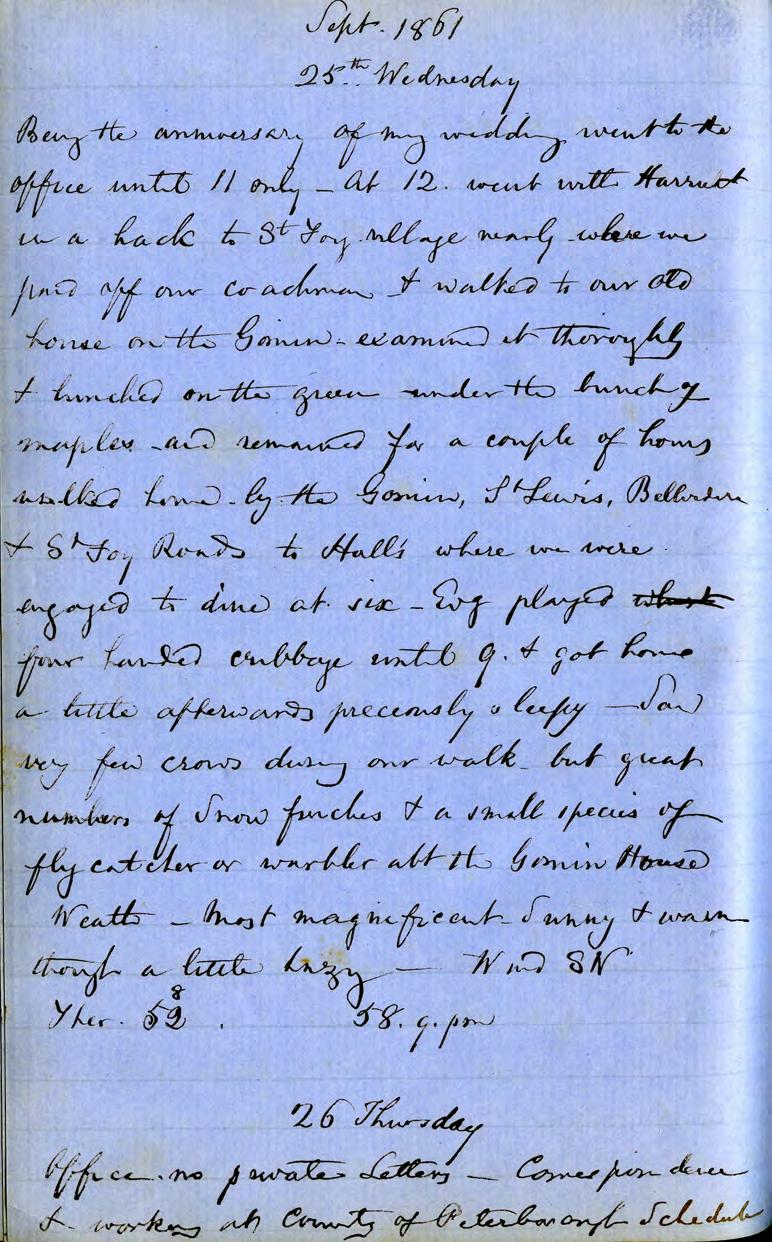 Sept. 1861
25th Wednesday
Being the anniversary of my wedding went to the
office until 11 only - At 12. went with Harriet
in a hack to St Foy village nearly where we
paid off our coachman & walked to our old
house on the Gomin - examined it thoroughly
& lunched on the green under the bunch of
maples and remained for a couple of hours
walked home by the Gomin, St Lewis, Bellvidere
& St Foy Roads to Hall's where we were
engaged to dine at six - Evg played whist
four handed cribbage until 9. & got home
a little afterwards preciously sleepy - Saw
very few crows during our walk but great
numbers of Snow finches & a small species of
fly catcher or warbler abt the Gomin House
Weath - Most magnificent Sunny & warm
though a little hazy - Wind SW
Ther. 52 8 . 58. 9. pm
26 Thursday
Office. no private Letters - Correspondence
& working at County of Peterborough Schedule